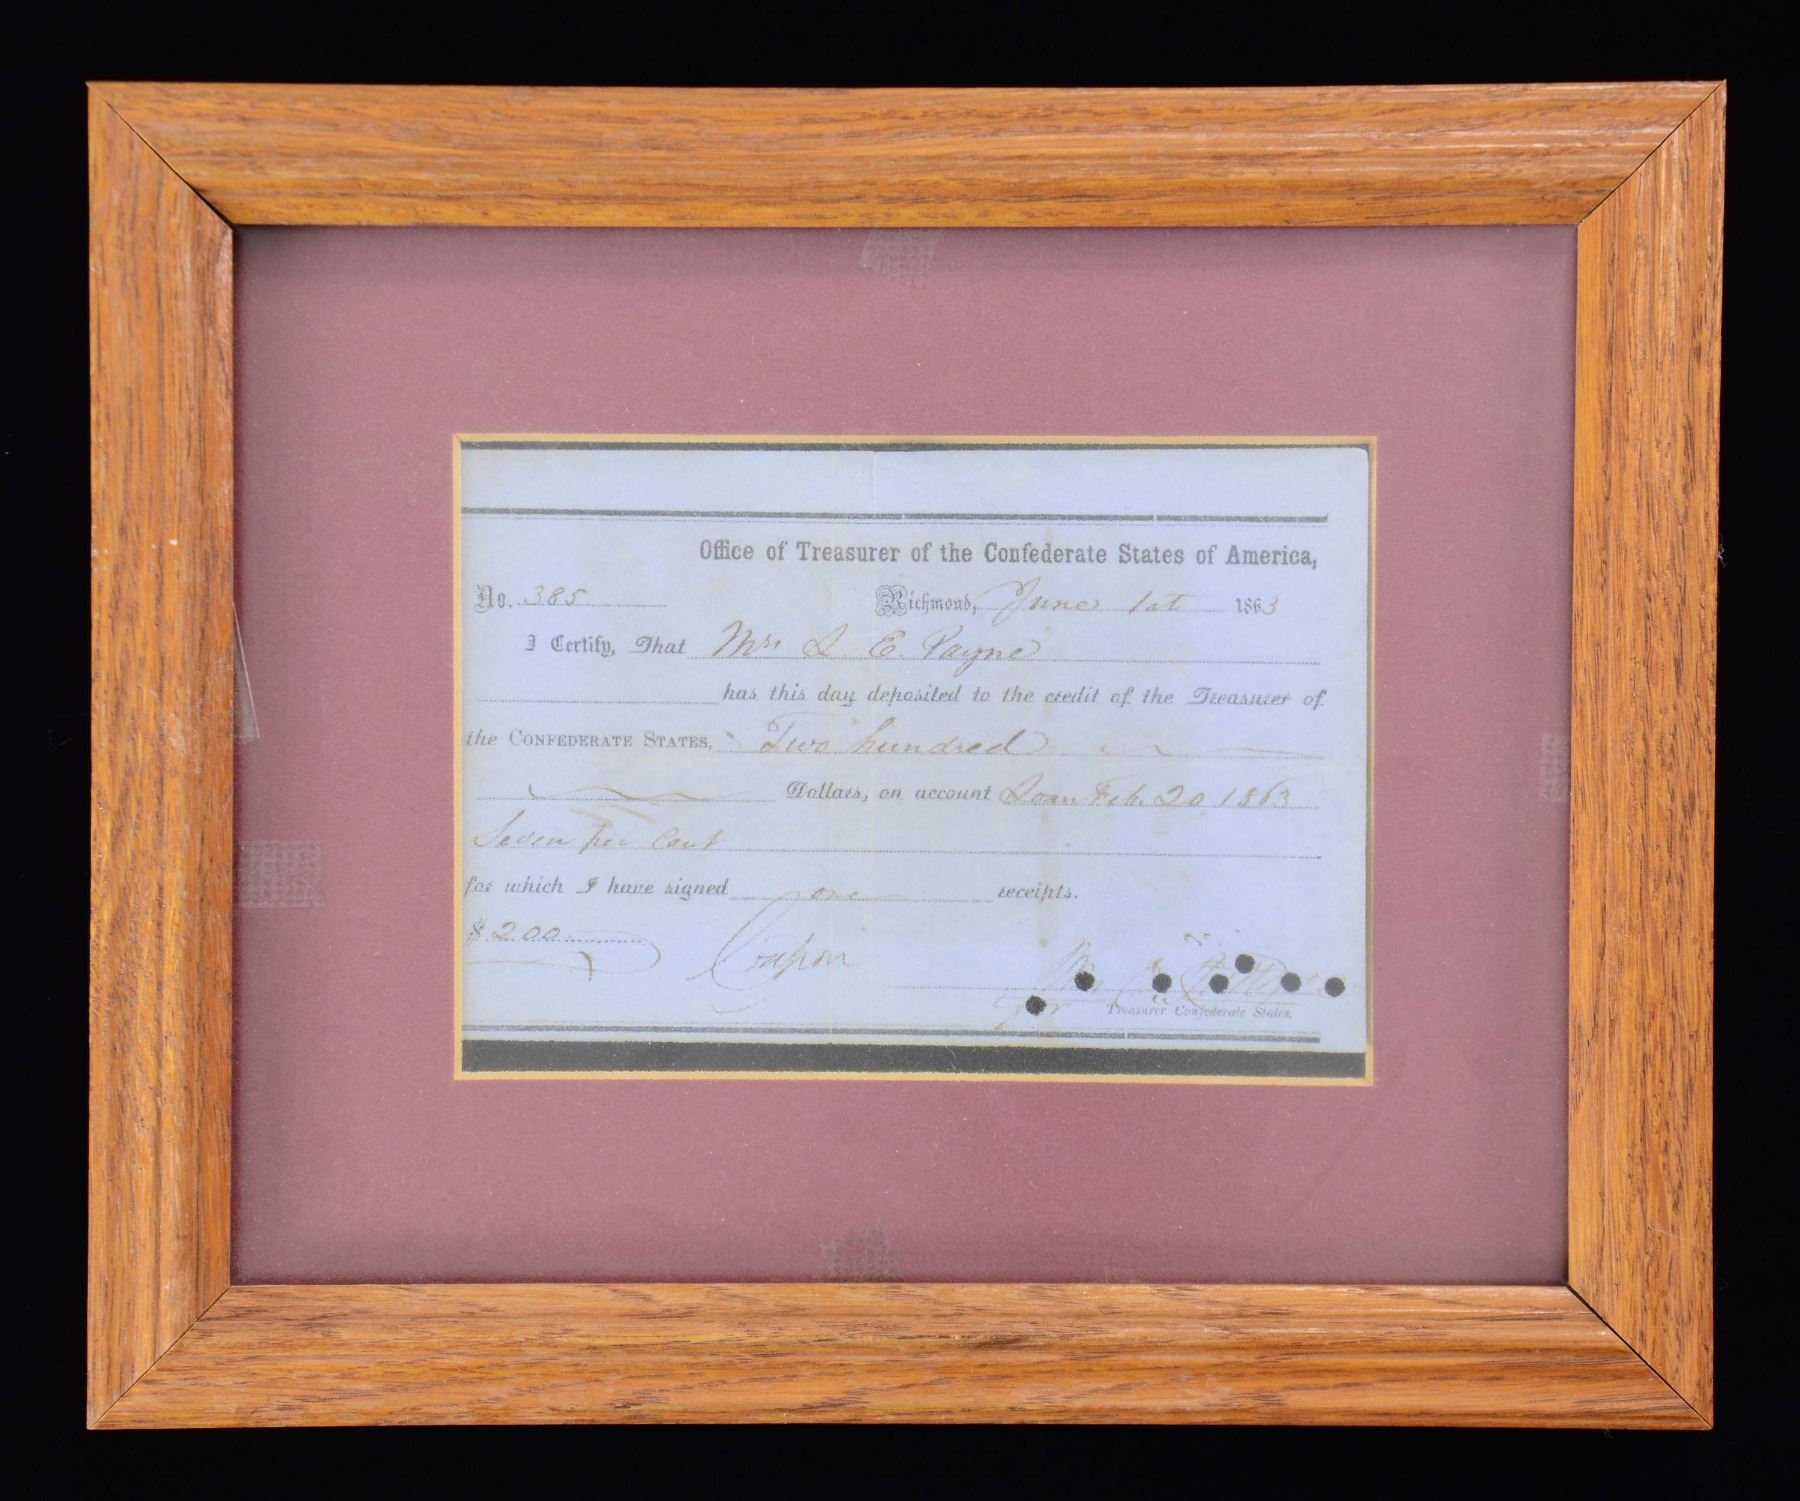 Office of Treasurer of the Confederate States of America,
No. 385 Richmond, June 1st 1863
I Certify, That Mrs S. E. Payne
has this day deposited to the credit of the Treasurer of
the CONFEDERATE STATES, Two hundred
Dollars, on account Loan Feb. 20 1863
Seven per cent
for which I have signed one receipts.
$ 200
Coupon
Treasurer Confederate States.